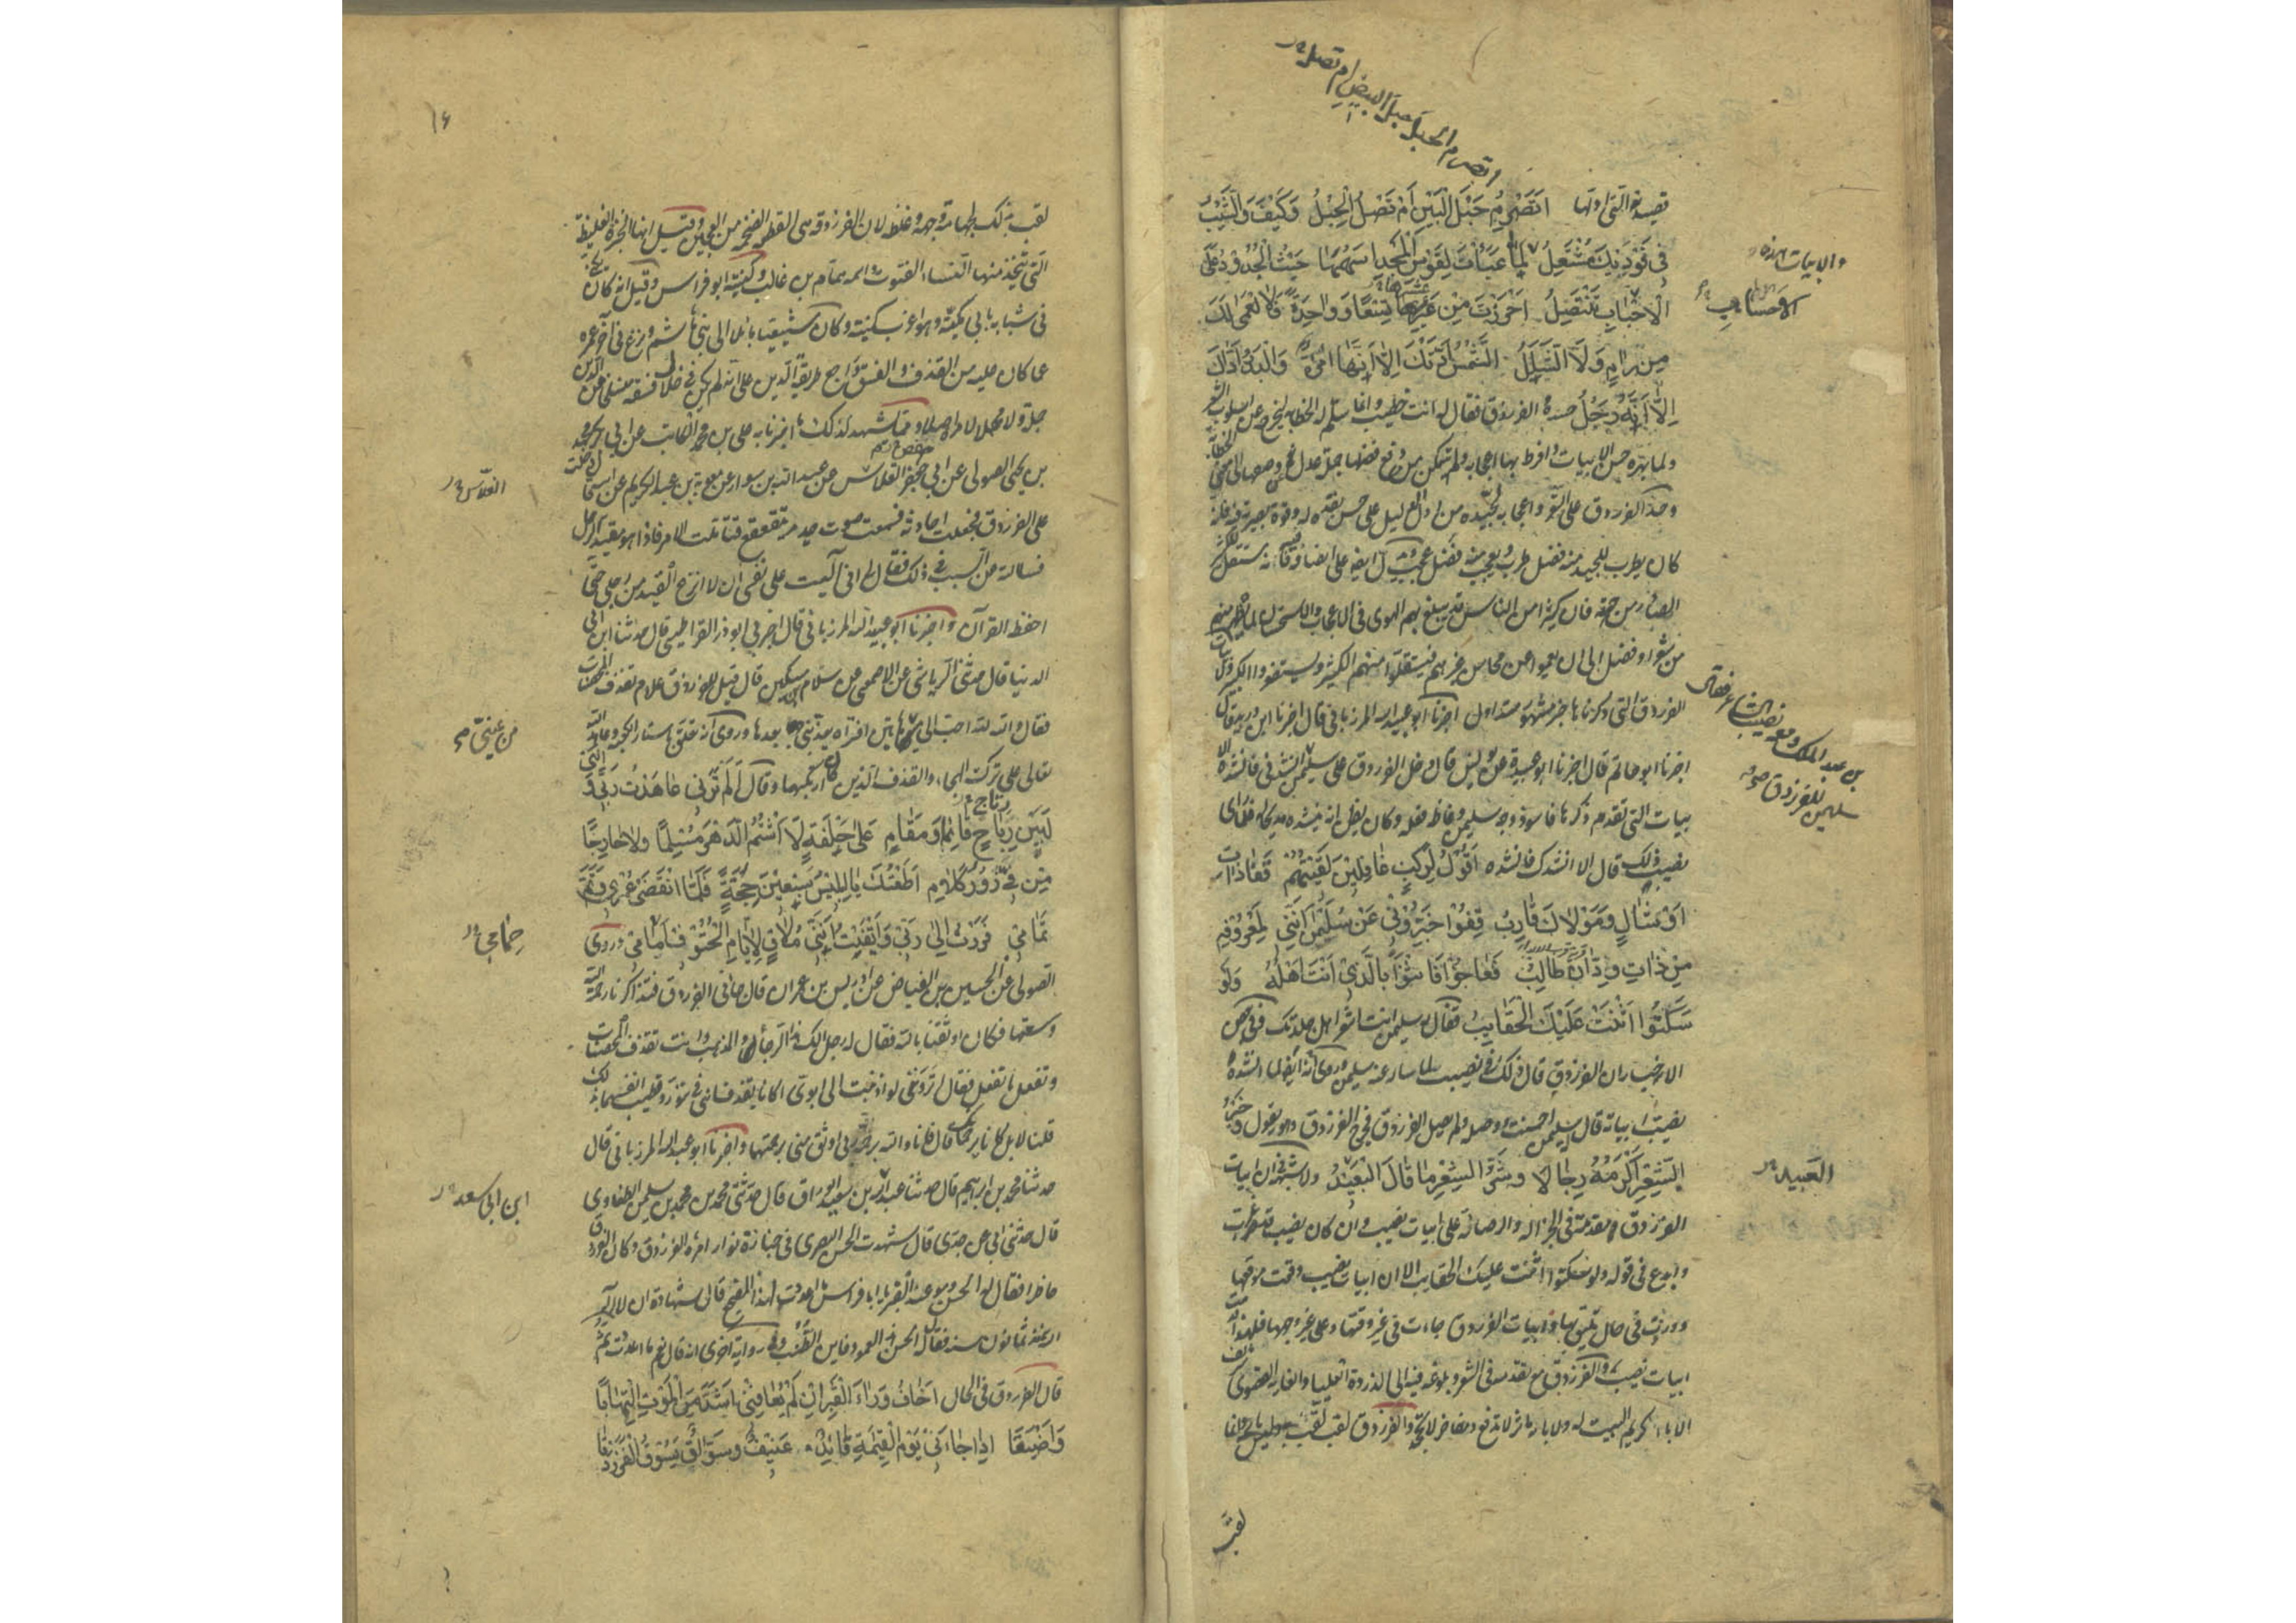 أتصرم الحبل حبل البيض أم تصل
قصيدته التي اولها اَتَصْرِمُ حَبْلَ الْبَيْنِ اَمْ تَصِلُ الْحَبْلُ وَكَيْفَ وَالشَّيْبُ
فِي فَوْدَيْكَ مُشْتَعِلُ لَمَّا عَبَأْتَ لِقَوْسِ الْمَجْدِ اَسْهُمَهَا حَيْثُ الْجُدُودُ عَلَى
والابيات هذه
الْاَحْسَابِ تَنْتَضِلُ اَحْرَزْتَ مِنْ عَشْرِهَا تِسْعًا وَوَاحِدَةً فَلَا الْعَمَى لَكَ
الاحساب
مِنْ رَامٍ وَلَا الشَّلَلُ الشَّمْسُ اَدَّتْكَ اِلَّا اَنَّهَا امْرَاَةٌ وَالْبَدْرُ اَدَّاكَ
اِلَّا اَنَّهُ رَجُلُ حسده الفرزدق فقال له انت خطيب وانما سلم له الخطابة ليخرجه عن اسلوب الشعر
ولما بهره حسن الابيات وافرط بها اعجابه ولم يتمكن من دفع فضلها جملة عدل في وصفها الى معنى الخطابة
وحسد الفرزدق على الشعر واعجابه بجيده من ادل دليل على حسن نقده له وقوة بصيرته فيه فانه
كان يطرب للجيد منه فضل طرب ويعجب منه فضل عجب ويدل ايضا على انصافه فيه وانه مستقل للكثير
الصادر من جهته فان كثيرا من الناس قد يبلغ بهم الهوى في الاعجاب والاستحسان لما يظهر منهم
من شعر او فضل الى ان يعموا عن محاسن غيرهم فيستقلوا منهم الكثير ويستصغروا الكبير ولابيات
الفرزدق التي ذكرناها خبر مشهور متداول اخبرنا ابو عبيد الله المرزباني قال اخبرنا ابن دريد قال
اخبرنا ابو حاتم قال اخبرنا ابو عبيدة عن يونس قال دخل الفرزدق على سليمن
بن عبد الملك ومعه نصيب الشاعر فقال
سليمن للفرزدق
انشدني فانشده الا
بيات التي تقدم ذكرها فاسود وجه سليمن وغاظه فعله وكان يظن انه ينشده مديحا له فلما راى
نصيب ذلك قال الا انشدك فانشده اَقُولُ لِرَكْبٍ قَافِلِينَ لَقِيتُهُمْ قَفَا ذَاتِ
اَوْشَالٍ وَمَوْلَاكَ قَارِبُ قِفُوا خَبِّرُونِي عَنْ سُلَيْمَنَ اِنَّنِي لِمَعْرُوفِهِ
مِنْ ذَاتِ وَدَّانَ طَالِبُ فَعَاجُوا فَاَثْنَوْا بِالَّذِي اَنْتَ اَهْلُهُ وَلَوْ
سَكَتُوا اَثْنَتْ عَلَيْكَ الْحَقَايِبُ فقال له سليمن انت اشعر اهل جلدتك وفي بعض
الاخبار ان الفرزدق قال ذلك في نصيب لما سأله عنه سليمن وروى انه ايضا لما انشده
نصيب ابياته قال له سليمن احسنت ووصله ولم يصل الفرزدق فخرج الفرزدق وهو يقول وَخَيْرُ
الشِّعْرِ اَكْرَمُهُ رِجَالًا وَشَرُّ الشِّعْرِ مَا قَالَ الْعَبِيدُ ولا شبهة في ان ابيات
العبيد
الفرزدق مقدمة في الجزالة والرصانة على ابيات نصيب وان كان نصيب قد اغرب
وابدع في قوله ولو سكتوا اثنت عليك الحقايب الا ان ابيات نصيب وقعت موقعها
ووردت في حال تليق بها وابيات الفرزدق جاءت في غير وقتها وعلى غير وجهها فلهذا قدمت
ابيات نصيب والفرزدق مع تقدمه في الشعر وبلوغه فيه الى الذروة العليا والغاية القصوى شريف
الاباء كريم البيت له ولآبائه مآثر لا تدفع ومفاخر لا تجحد والفرزدق لقب
لقب
١٦
لقب بذلك لجهامة وجهه وغلظه لان الفرزدقة هي القطعة الضخمة من العجين وقيل انها الخبزة الغليظة
التي تتخذ منها النساء الفتوت واسمه همام بن غالب وكنيته ابو فراس وقيل انه كان يكنى
في شبابه بابي مكية وهو اغرب كنيته وكان شيعيا مائلا الى بني هاشم ونزع في آخر عمره
عما كان عليه من القذف والفسق وراجع طريقة الدين على انه لم يكن في خلال فسقه منسلخا عن الدين
جملة ولا مهملا لامره اصلا ومما يشهد لذلك ما اخبرنا به علي بن محمد الكاتب عن ابي بكر محمد
بن يحيى الصولي عن ابي حفص الفلاس عن عبد الله بن سوار عن معوية بن عبد الكريم عن ابيه قال دخلت
الفلاس
على الفرزدق فجعلت احادثه فسمعت صوت حديد يتقعقع فتأملت الامر فاذا هو مقيد الرجل
فسالته عن السبب في ذلك فقال لي اني آليت على نفسي ان لا انزع القيد من رجلي حتى
احفظ القرآن واخبرنا ابو عبيد الله المرزباني قال اخبرني ابو ذر القراطيسي قال حدثنا ابن ابي
الدنيا قال حدثني الرياشي عن الاصمعي عن سلام بن مسكين قال قيل للفرزدق علام تقذف المحصنات
فقال والله لله احب الي من عيني هاتين افتراه يعذبني بعدها وروى انه تعلق باستار الكعبة وعاهد الله
من عيني
تعالى على ترك الهجاء والقذف الذين كان ارتكبهما وقال اَلَمْ تَرَنِي عَاهَدْتُ رَبِّي وَاِنَّنِي
لَبَيْنَ رِتَاجٍ قَائِمًا وَمَقَامِ عَلَى حِلْفَةٍ لَا اَشْتُمُ الدَّهْرَ مُسْلِمًا وَلَا خَارِجًا
مِنْ فِيَّ زُورُ كَلَامِ اَطَعْتُكَ يَا اِبْلِيسُ سَبْعِينَ حِجَّةً فَلَمَّا انْقَضَى عُمْرِي وَتَمَّ
تَمَامِي فَزِعْتُ اِلَى رَبِّي وَاَيْقَنْتُ اَنَّنِي مُلَاقٍ لِاَيَّامِ الْحُتُوفِ حِمَامِي وروى
حمامي
الصولي عن الحسين بن الفياض عن ادريس بن عمران قال جاءني الفرزدق فتذاكرنا رحمة الله
وسعتها فكان اوثقنا بالله فقال له رجل الك هذا الرجاء والمذهب وانت تقذف المحصنات
وتفعل ما تفعل فقال اتروني لو اذنبت الى ابوي اكانا يقذفاني في تنور وتطيب انفسهما بذلك
قلنا لا بل كانا يرحمانك قال فانا والله برحمة ربي اوثق مني برحمتهما واخبرنا ابو عبيد الله المرزباني قال
حدثنا محمد بن ابراهيم قال حدثنا عبد الله بن سعيد الوراق قال حدثني محمد بن محمد بن سليمن الطفاوي
ابن ابي سعد
قال حدثني ابي عن جدي قال شهدت الحسن البصري في جنازة نوار امرأة الفرزدق وكان الفرزدق
حاضرا فقال له الحسن وهو عند القبر يا ابا فراس ما اعددت لهذا المضجع قال شهادة ان لا اله الا
الله منذ ثمانون سنة فقال الحسن هذا العمود فاين الطنب وفي رواية اخرى انه قال نعم ما اعددت ثم
قال الفرزدق في الحال اَخَافُ وَرَاءَ الْقَبْرِ اِنْ لَمْ يُعَافِنِي اَشَدَّ مِنَ الْمَوْتِ الْتِهَابًا
وَاَضْيَقَا اِذَا جَاءَنِي يَوْمَ الْقِيمَةِ قَائِدٌ عَنِيفٌ وَسَوَّاقٌ يَسُوقُ الْفَرَزْدَقَا